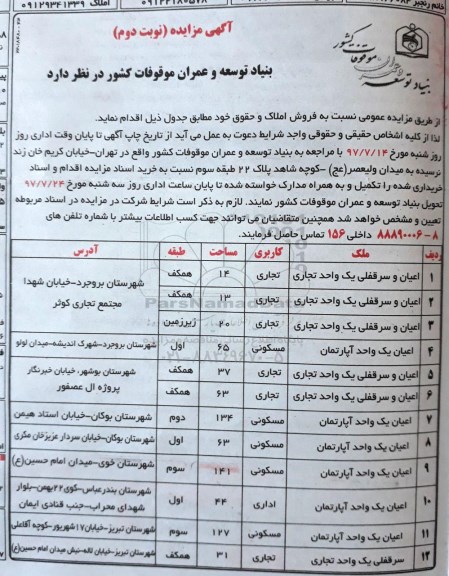 خانم رنجبر
املاک ۰۹۱۲۹۳۴۱۳۳۹
بنیاد توسعه و عمران موقوفات کشور
آگهی مزایده (نوبت دوم)
بنیاد توسعه و عمران موقوفات کشور در نظر دارد
از طریق مزایده عمومی نسبت به فروش املاک و حقوق خود مطابق جدول ذیل اقدام نماید.
لذا از کلیه اشخاص حقیقی و حقوقی واجد شرایط دعوت به عمل می آید از تاریخ چاپ آگهی تا پایان وقت اداری روز
روز شنبه مورخ ۹۷/۷/۱۴ با مراجعه به بنیاد توسعه و عمران موقوفات کشور واقع در تهران-خیابان کریم خان زند
نرسیده به میدان ولیعصر(عج) -کوچه شاهد پلاک ۲۲ طبقه سوم نسبت به خرید اسناد مزایده اقدام و اسناد
خریداری شده را تکمیل و به همراه مدارک خواسته شده تا پایان ساعت اداری روز سه شنبه مورخ ۹۷/۷/۲۴
تحویل بنیاد توسعه و عمران موقوفات کشور نمایند. لازم به ذکر است شرایط شرکت در مزایده در اسناد مربوطه
تعیین و مشخص خواهد شد همچنین متقاضیان می توانند جهت کسب اطلاعات بیشتر با شماره تلفن های
۸-۸۸۸۹۰۰۰۶ داخلی ۱۵۶ تماس حاصل فرمایند.
ردیف ملک کاربری مساحت طبقه آدرس
۱ اعیان و سرقفلی یک واحد تجاری تجاری ۱۴ همکف شهرستان بروجرد-خیابان شهدا
۲ اعیان و سرقفلی یک واحد تجاری تجاری ۱۳ همکف مجتمع تجاری کوثر
۳ اعیان و سرقفلی یک واحد تجاری تجاری ۲۰ زیرزمین
۴ اعیان یک واحد آپارتمان مسکونی ۶۵ اول شهرستان بروجرد-شهرک اندیشه-میدان لولو
۵ اعیان و سرقفلی یک واحد تجاری تجاری ۳۷ همکف شهرستان بوشهر، خیابان خبرنگار
۶ اعیان و سرقفلی یک واحد تجاری تجاری ۶۳ همکف پروژه ال عصفور
۷ اعیان یک واحد آپارتمان مسکونی ۱۳۴ دوم شهرستان بوکان-خیابان استاد هیمن
۸ اعیان یک واحد آپارتمان مسکونی ۶۳ اول شهرستان بوکان-خیابان سردار عزیزخان مکری
۹ اعیان یک واحد آپارتمان مسکونی ۱۴۱ سوم شهرستان خوی-میدان امام حسین(ع)
۱۰ اعیان یک واحد آپارتمان اداری ۴۴ اول شهرستان بندرعباس-کوی ۲۲بهمن-بلوار
شهدای محراب-جنب قنادی ایمان
۱۱ اعیان یک واحد آپارتمان مسکونی ۱۲۷ سوم شهرستان تبریز-خیابان ۱۷شهریور-کوچه آقاعلی
۱۲ سرقفلی یک واحد تجاری تجاری ۳۱ همکف شهرستان تبریز-خیابان لاله-نبش میدان امام حسین(ع)
ParsNamadData
۰۲۱-۸۸۳۴۹۶۷۰-۵